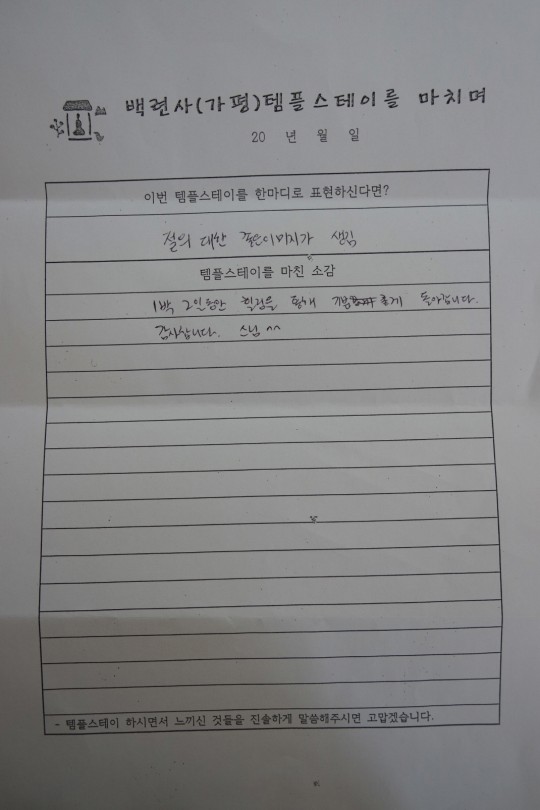 백련사(가평)템플스테이를 마치며
20 년 월 일
이번 템플스테이를 한마디로 표현하신다면?
절의 대한 좋은이미지가 생김
템플스테이를 마친 소감
1박 2일동안 힐링을 통해 기분 좋게 돌아갑니다.
감사합니다. 스님 ^^
- 템플스테이 하시면서 느끼신 것들을 진솔하게 말씀해주시면 고맙겠습니다.